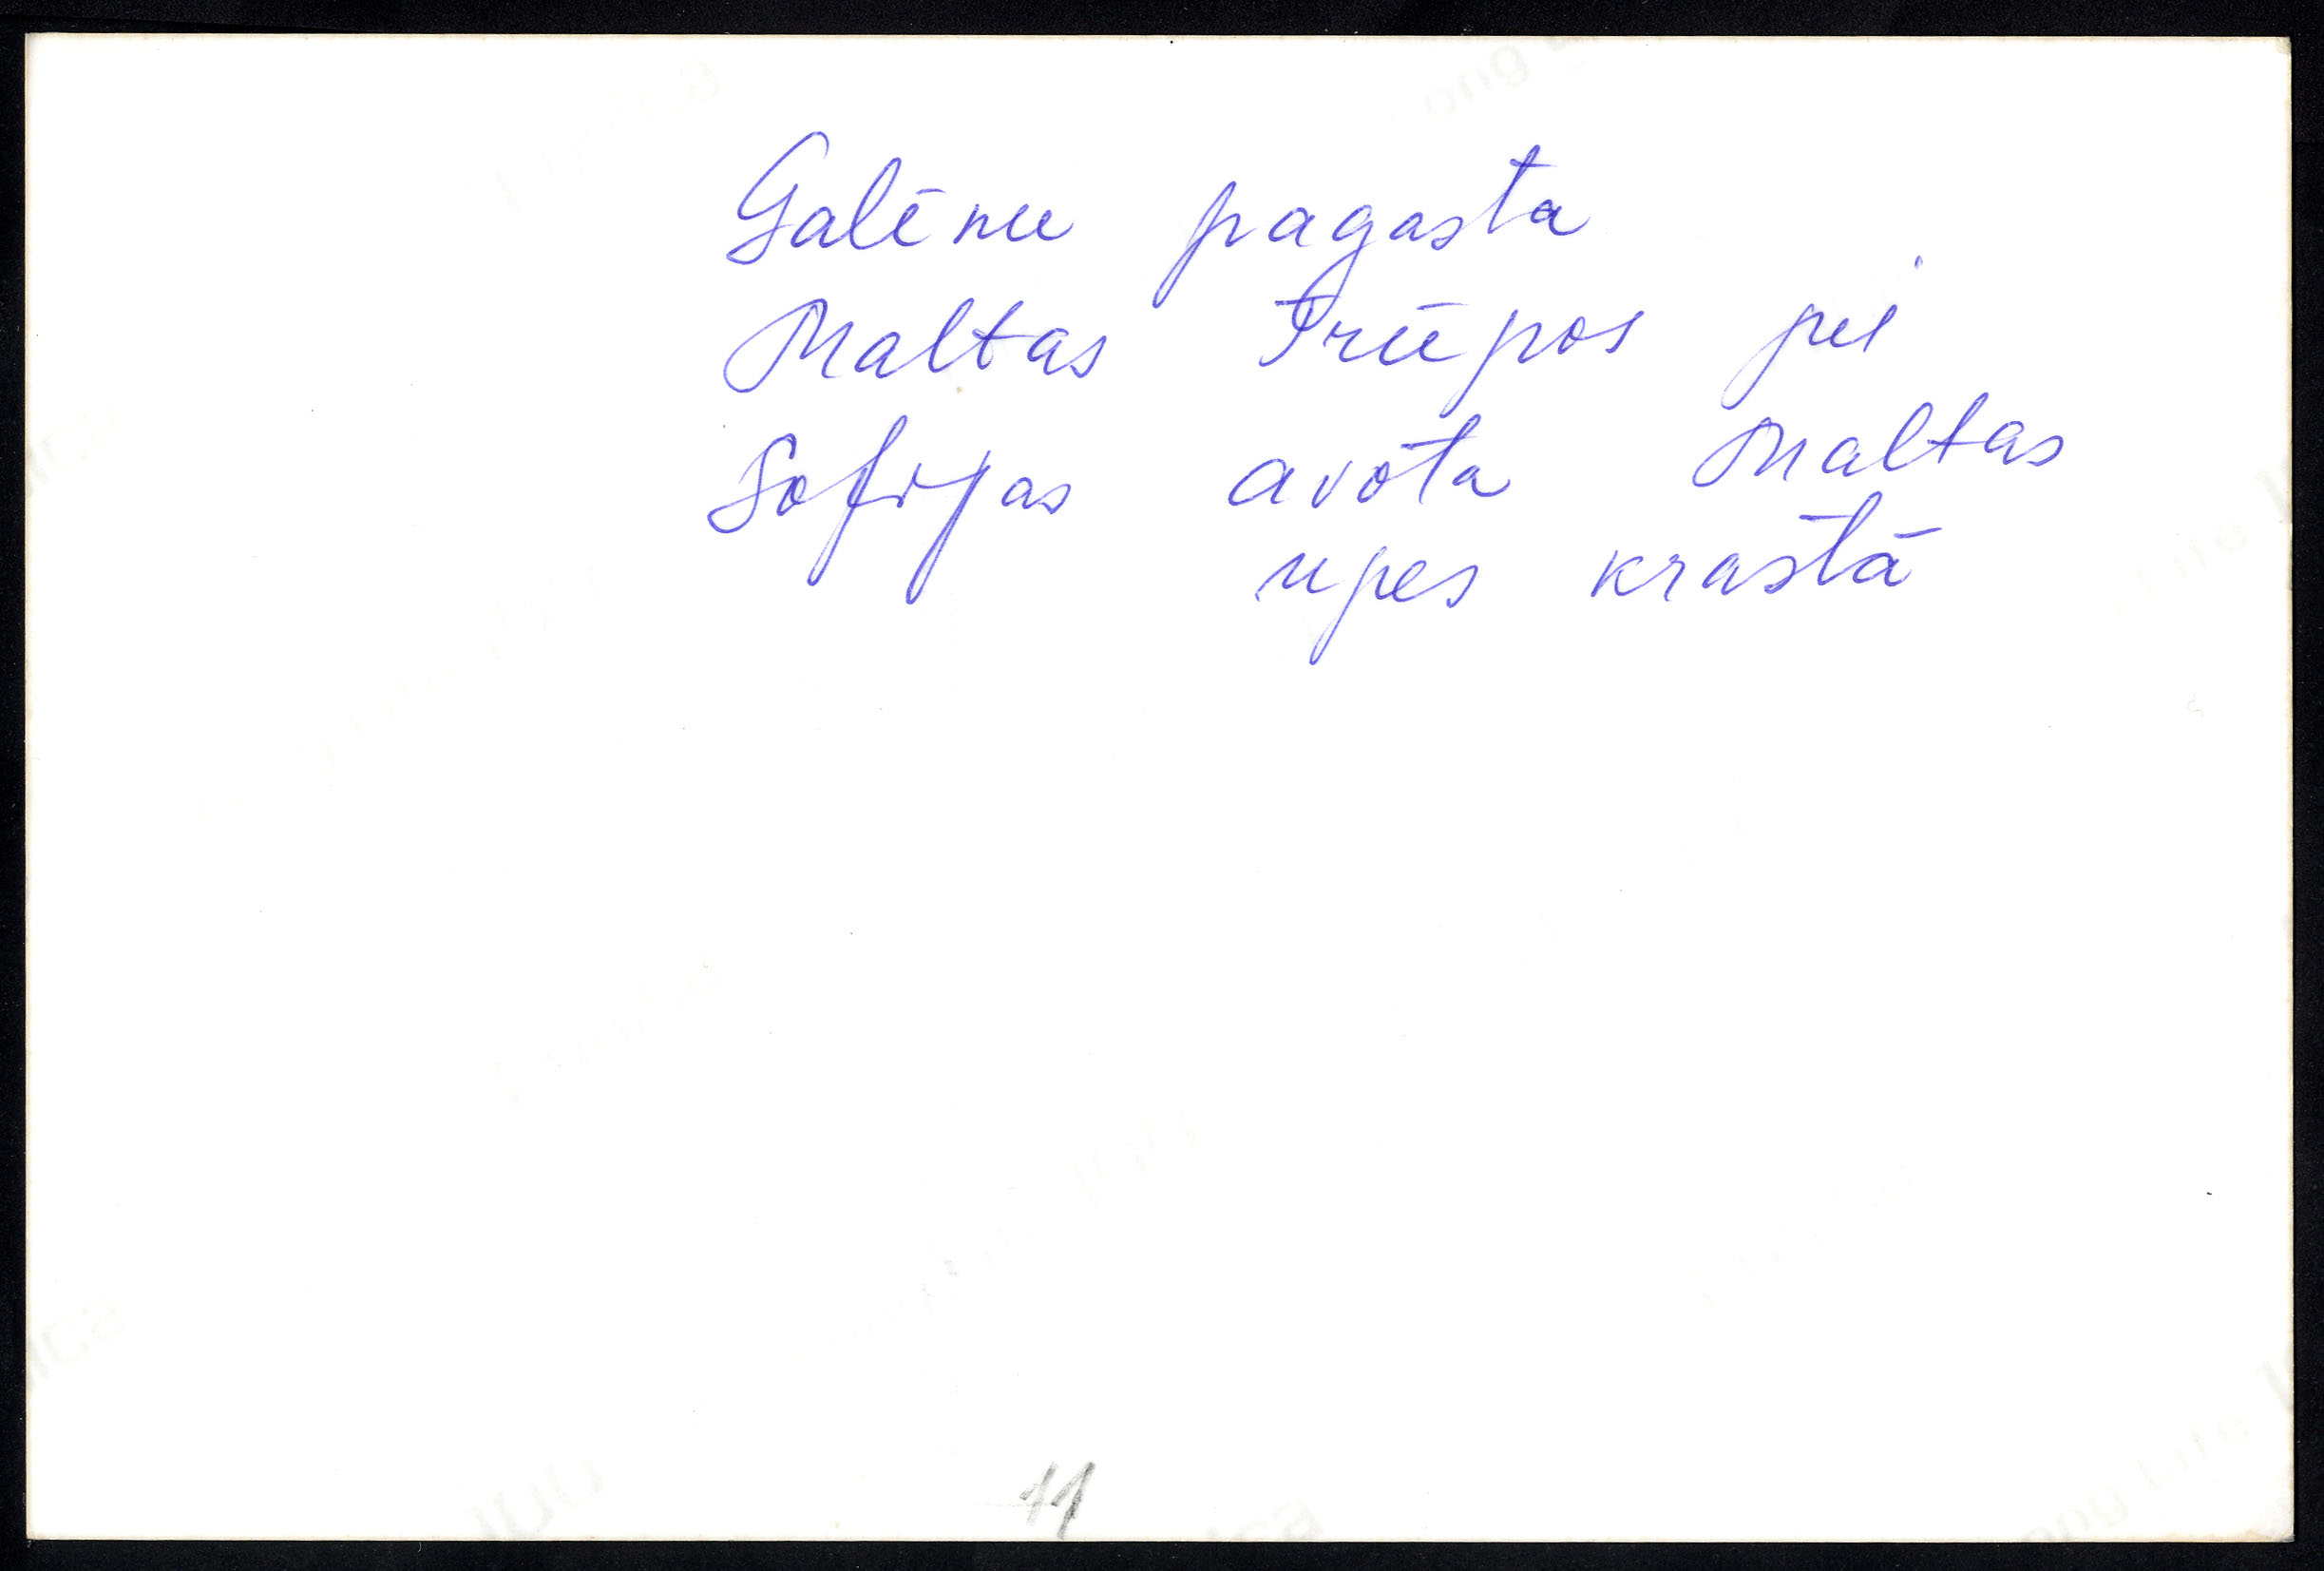 Galēnu pagasta
Maltas Trūpos pei
Sofijas avota Maltas
upes krastā
11